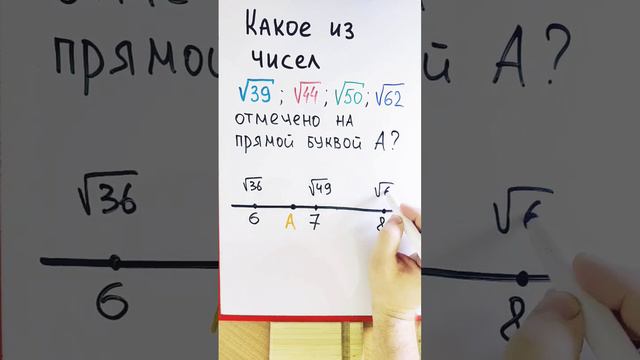 Какое из
чисел
√39 ; √44 ; √50 ; √62
отмечено на
прямой буквой А?
√36 √49 √6
6 А 7 8